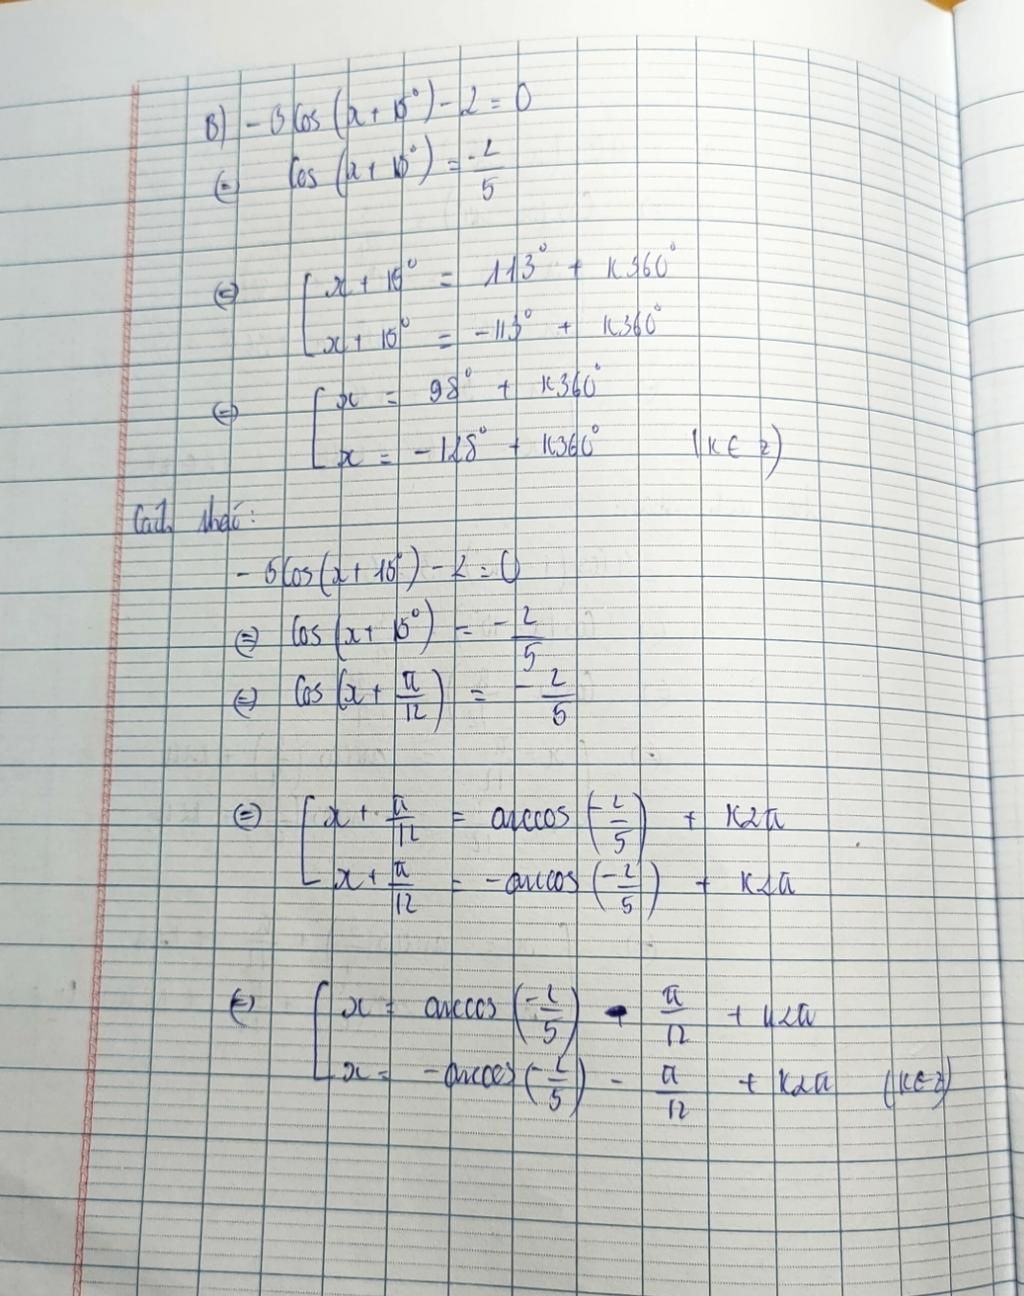 B) -5cos(x+15°) - 2 = 0
(=) cos(x+15°) = -2/5
(=) [ x+15° = 113° + K360°
x+15° = -113° + K360°
(=) [ x = 98° + K360°
x = -128° + K360° (K∈Z)
Cách khác:
-5cos(x+15°) - 2 = 0
(=) cos(x+15°) = -2/5
(=) cos(x+π/12) = -2/5
(=) [ x+π/12 = arccos(-2/5) + K2π
x+π/12 = -arccos(-2/5) + K2π
(=) [ x = arccos(-2/5) - π/12 + K2π
x = -arccos(-2/5) - π/12 + K2π (K∈Z)